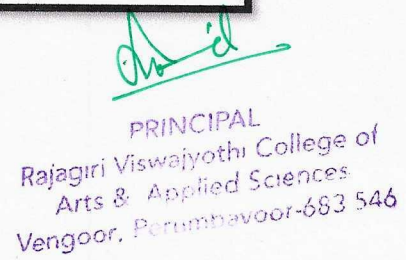 PRINCIPAL
Rajagiri Viswajyothi College of
Arts & Applied Sciences
Vengoor, Perumbavoor-683 546